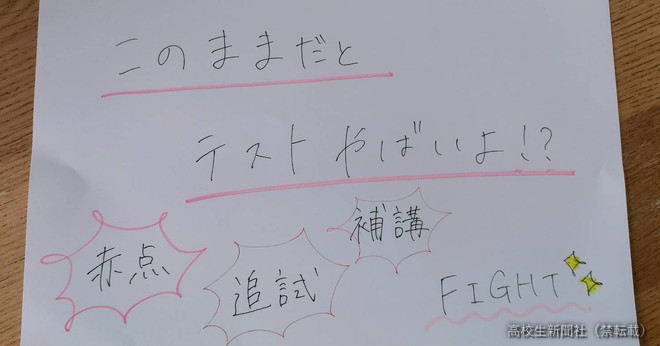 このままだと
テストやばいよ!?
赤点
追試
補講
FIGHT
高校生新聞社（禁転載）